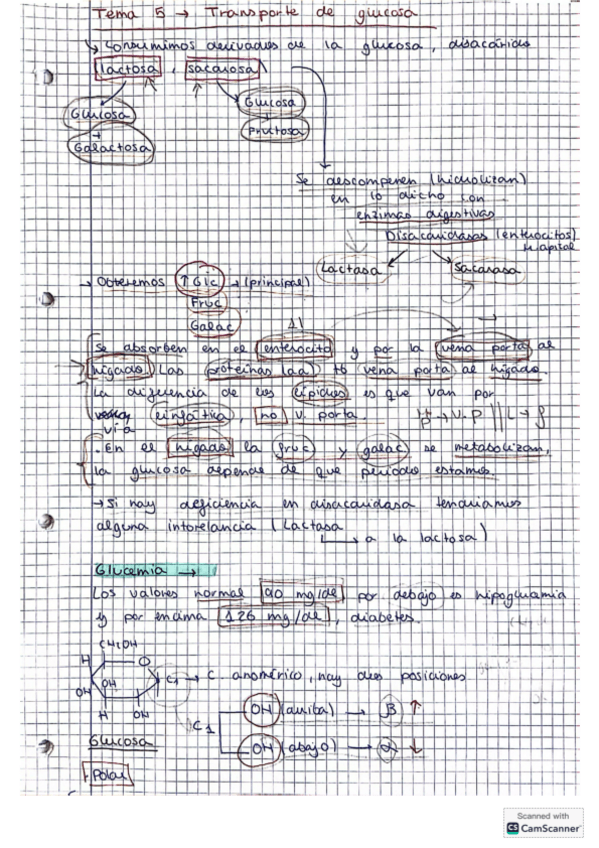 Tema 5 → Transporte de glucosa
↳ Consumimos derivados de la glucosa, disacáridos
lactosa, sacarosa
Glucosa
+
Galactosa
Glucosa
+
Fructosa
Se descomponen (hidrolizan)
en lo dicho con
enzimas digestivas
Disacaridasas (enterocitos)
Lactasa
Sacarasa
→ Obtenemos ↑Glc → (principal)
Fruc
Galac
Se absorben en el enterocito y por la vena porta al
hígado. Las proteinas (aa) tb vena porta al hígado.
La diferencia de los lípidos es que van por
vía linfática, no v. porta.
· En el hígado la fruc y galac se metabolizan,
la glucosa depende de que periodo estamos.
→ Si hay deficiencia en disacaridasa tendríamos
alguna intorelancia (Lactasa
↳ a la lactosa)
Glucemia →
Los valores normal 90 mg/dl por debajo es hipogluamia
y por encima 126 mg/dl, diabetes.
CH2OH
H
O
OH
OH
C1 → C. anomérico, hay dos posiciones
H
OH
Glucosa
Polar
C1
OH (arriba) → β ↑
OH (abajo) → α ↓
Scanned with
CS CamScanner